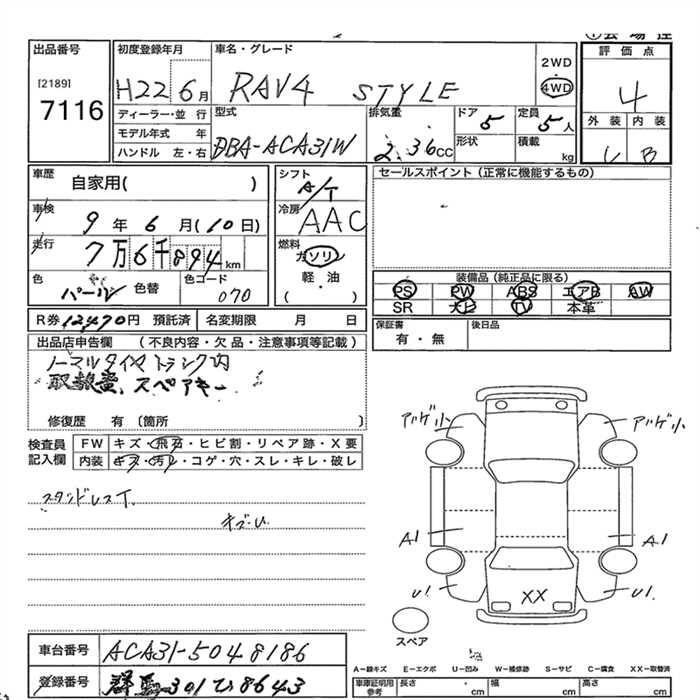 出品番号
[2189]
7116
初度登録年月
H22 6月
車名・グレード
RAV4 STYLE
2WD
4WD
評価点
4
外装 内装
B
ディーラー・並行
モデル年式 年
ハンドル 左・右
型式
DBA-ACA31W
排気量
2.36cc
ドア 5
形状
定員 5人
積載 kg
車歴
自家用( )
車検
9年 6月(10日)
走行
7万6千894km
色
パール
色替
色コード
070
シフト
A/T
冷房
AAC
燃料
ガソリン
軽・油
( )
セールスポイント(正常に機能するもの)
装備品(純正品に限る)
PS PW ABS エアB AW
SR ナビ TV 本革
R券 12470円 預託済
名変期限 月 日
保証書
有・無
後日品
出品店申告欄 (不良内容・欠品・注意事項等記載)
ノーマルタイヤ トランク内
取扱書、スペアキー
修復歴 有 〔箇所 〕
検査員
記入欄
FW キズ・飛石・ヒビ割・リペア跡・X要
内装 キズ・汚レ・コゲ・穴・スレ・キレ・破レ
スタッドレスT.
キズ・U
A1
A1
U1
U1
XX
スペア
車台番号
ACA31-5048186
登録番号
群馬 301 ひ 8643
A−線キズ E−エクボ U−凹み W−補修跡 S−サビ C−腐食 XX−取替済
車庫証明用
参考
長さ cm
幅 cm
高さ cm